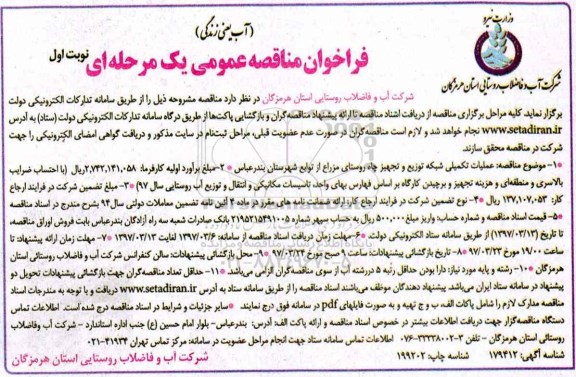 (آب یعنی زندگی)
وزارت نیرو
شرکت آب و فاضلاب روستایی استان هرمزگان
فراخوان مناقصه عمومی یک مرحله ای
نوبت اول
شرکت آب و فاضلاب روستایی استان هرمزگان در نظر دارد مناقصه مشروحه ذیل را از طریق سامانه تدارکات الکترونیکی دولت
برگزار نماید. کلیه مراحل برگزاری مناقصه از دریافت اسناد مناقصه تا ارائه پیشنهاد مناقصه‌گران و بازگشایی پاکت‌ها از طریق درگاه سامانه تدارکات الکترونیکی دولت (ستاد) به آدرس
www.setadiran.ir انجام خواهد شد و لازم است مناقصه‌گران در صورت عدم عضویت قبلی، مراحل ثبت‌نام در سایت مذکور و دریافت گواهی امضای الکترونیکی را جهت
شرکت در مناقصه محقق سازند.
۱- موضوع مناقصه: عملیات تکمیلی شبکه توزیع و تجهیز چاه روستای مزراع از توابع شهرستان بندرعباس ۲- مبلغ برآورد اولیه کارفرما: ۲,۷۴۲,۱۴۱,۰۵۸ ریال (با احتساب ضرایب
بالاسری و منطقه‌ای و هزینه تجهیز و برچیدن کارگاه بر اساس فهارس بهای واحد، تاسیسات مکانیکی و انتقال و توزیع آب روستایی سال ۹۷) ۳- مبلغ تضمین شرکت در فرایند ارجاع
کار: ۱۳۷,۱۰۷,۰۵۳ ریال ۴- نوع تضمین شرکت در فرایند ارجاع کار: ارائه ضمانت نامه های مقرر شده آئین نامه تضمین معاملات دولتی سال۹۴ بشرح مندرج در اسناد مناقصه
۵- قیمت اسناد مناقصه و شماره حساب: واریز مبلغ ۵۰۰,۰۰۰ ریال به حساب سپهر شماره ۲۱۹۵۲۱۵۴۹۱۰۰۵ بانک صادرات شعبه سه راه آزادگان بندرعباس بابت فروش اوراق مناقصه
تا تاریخ (۱۳۹۷/۰۳/۱۳) از طریق سامانه ستاد الکترونیکی دولت. ۶- مهلت زمان دریافت اسناد مناقصه از سامانه: ۱۳۹۷/۰۳/۰۶ لغایت ۱۳۹۷/۰۳/۱۳ ۷- مهلت زمان ارائه پیشنهادات: تا
ساعت ۱۹/۰۰ مورخ ۹۷/۰۳/۲۳ ۸- تاریخ بازگشائی پیشنهادات: ساعت ۱۰ صبح مورخ ۹۷/۰۳/۲۴ ۹- محل بازگشائی پیشنهادات: سالن کنفرانس شرکت آب و فاضلاب روستائی استان
هرمزگان ۱۰- رشته و پایه مورد نیاز: دارا بودن حداقل رتبه ۵ در رشته آب از سوی مناقصه‌گران الزامی می‌باشد. ۱۱- حداقل تعداد مناقصه‌گران جهت بازگشائی پیشنهادات تحویل دو
پیشنهاد در سامانه ستاد ایران می‌باشد. پیشنهاد دهندگان موظف می‌باشند اسناد مناقصه را از طریق سامانه ستاد به آدرس www.setadiran.ir دریافت و با توجه به مندرجات اسناد
مناقصه مدارک لازم را شامل پاکات الف، ب و ج تهیه و به صورت فایلهای pdf در سامانه فوق درج نمایند. سایر جزئیات و شرایط در اسناد مناقصه درج شده است. اطلاعات تماس
دستگاه مناقصه‌گزار جهت دریافت اطلاعات بیشتر در خصوص اسناد مناقصه و ارائه پاکت الف: آدرس: بندرعباس- بلوار امام حسین (ع) جنب اداره استاندارد - شرکت آب وفاضلاب
روستائی استان هرمزگان - تلفن ۳-۰۷۶-۳۳۳۳۸۰۰۲ اطلاعات تماس سامانه ستاد جهت انجام مراحل عضویت در سامانه: مرکز تماس تهران ۴۱۹۳۴-۰۲۱
شناسه آگهی: ۱۷۹۴۱۲ شناسه چاپ: ۱۹۹۲۰۲
شرکت آب و فاضلاب روستایی استان هرمزگان